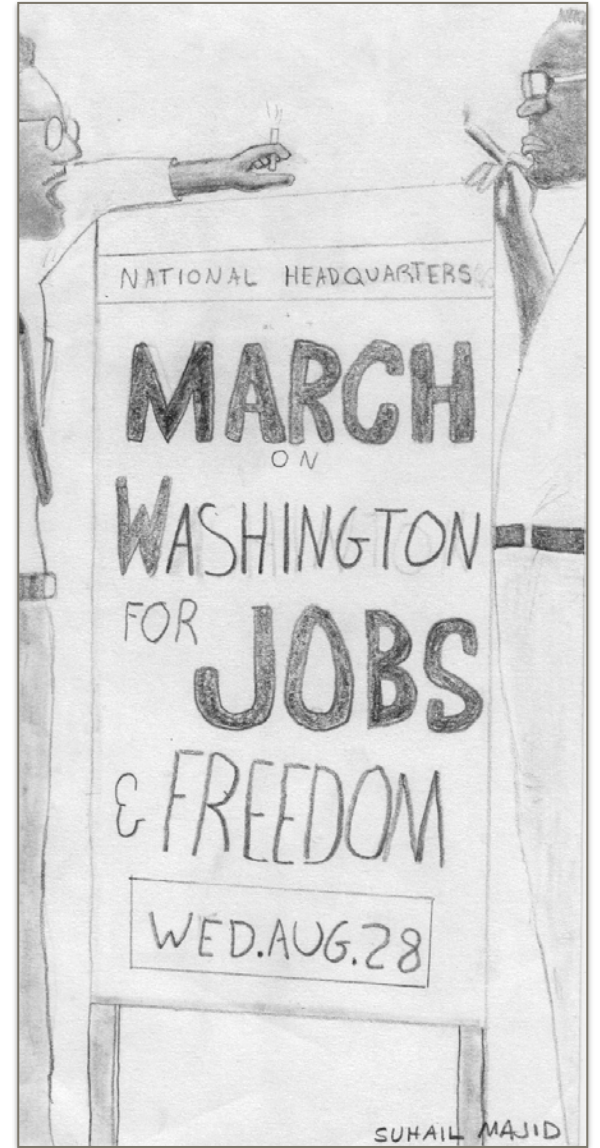 NATIONAL HEADQUARTERS
MARCH
ON
WASHINGTON
FOR
JOBS
& FREEDOM
WED.AUG.28
SUHAIL MAJID